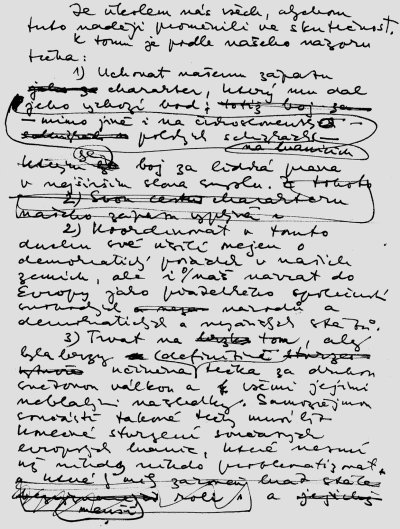 Je úkolem nás všech, abychom
tuto naději proměnili ve skutečnost.
K tomu je podle našeho názoru
třeba:
1) Uchovat našemu zápasu
charakter, který mu dal
jeho výchozí bod: totiž boj za
mimo jiné i na
polských
na hranicích
boj za lidská práva
v nejširším slova smyslu. Z tohoto
2) charakteru
našeho zápasu vyplývá
2) Koordinovat v tomto
duchu své úsilí nejen o
demokratický pořádek v našich
zemích, ale i o náš návrat do
Evropy jako přátelského společenství
svobodných národů a
demokratických a nezávislých států.
3) Trvat na tom, aby
byla brzy definitivně
učiněna tečka za druhou
světovou válkou a všemi jejími
neblahými následky. Samozřejmou
součástí takové tečky musí být
konečné stvrzení současných
evropských hranic, které nesmí
už nikdy nikdo problematizovat,
a které
roli a jejich
menší